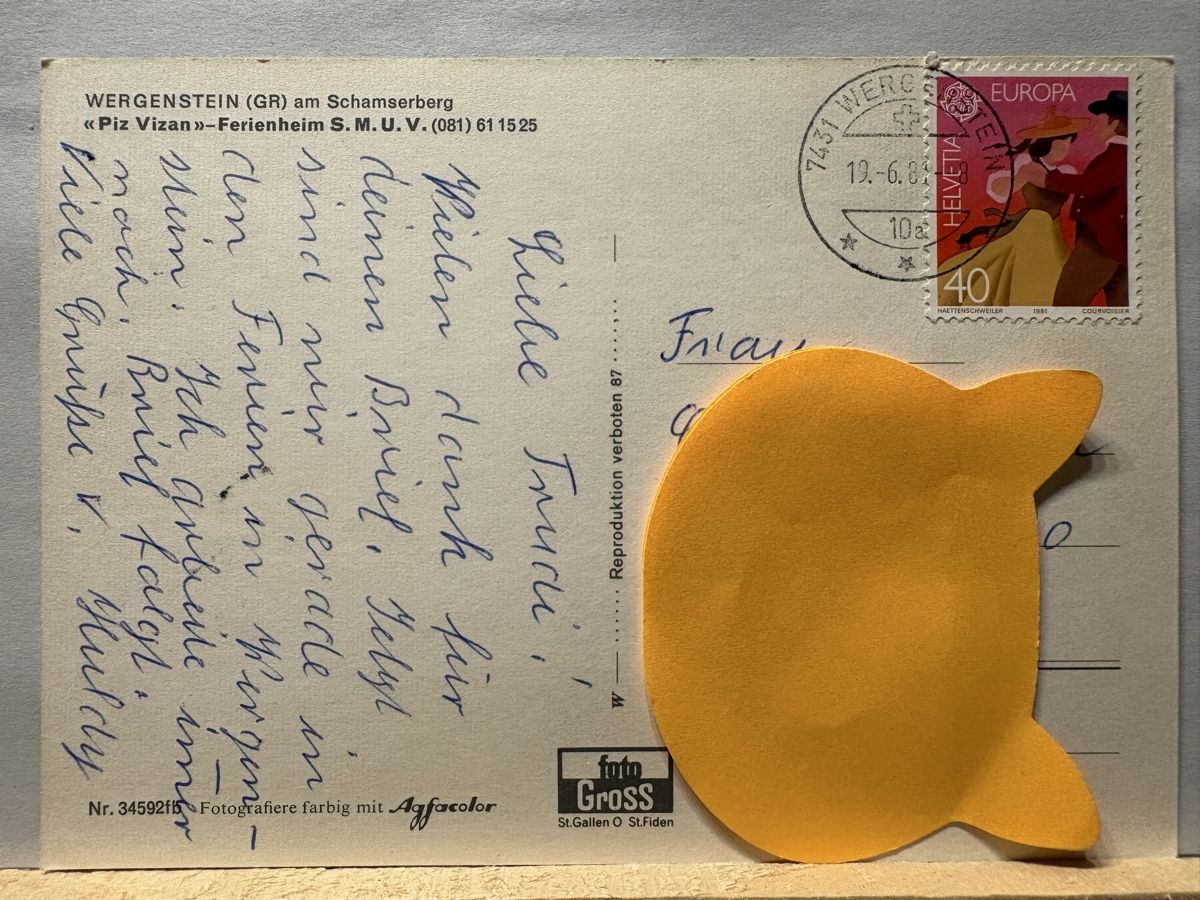 WERGENSTEIN (GR) am Schamserberg
«Piz Vizan»–Ferienheim S.M.U.V. (081) 61 15 25
Liebe Trudi!
Vielen dank für
deinen Brief. Jetzt
sind wir gerade in
den Ferien in Wergen-
stein. Ich arbeite imer
noch. Brief folgt.
Viele Grüsse v. Huldy
Nr. 34592fl5 Fotografiere farbig mit Agfacolor
W Reproduktion verboten 87
foto
Gross
St.Gallen O St.Fiden
7431 WERGENSTEIN
19.-6.81-8
10a
EUROPA
HELVETIA
40
HAETTENSCHWEILER 1981 COURVOISIER
Frau